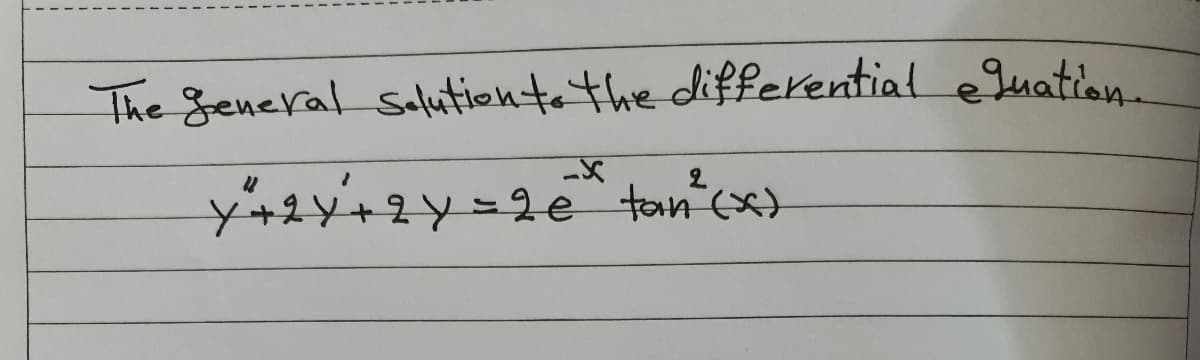 The general solution to the differential equation.
y''+2y'+2y=2e^-x tan^2(x)